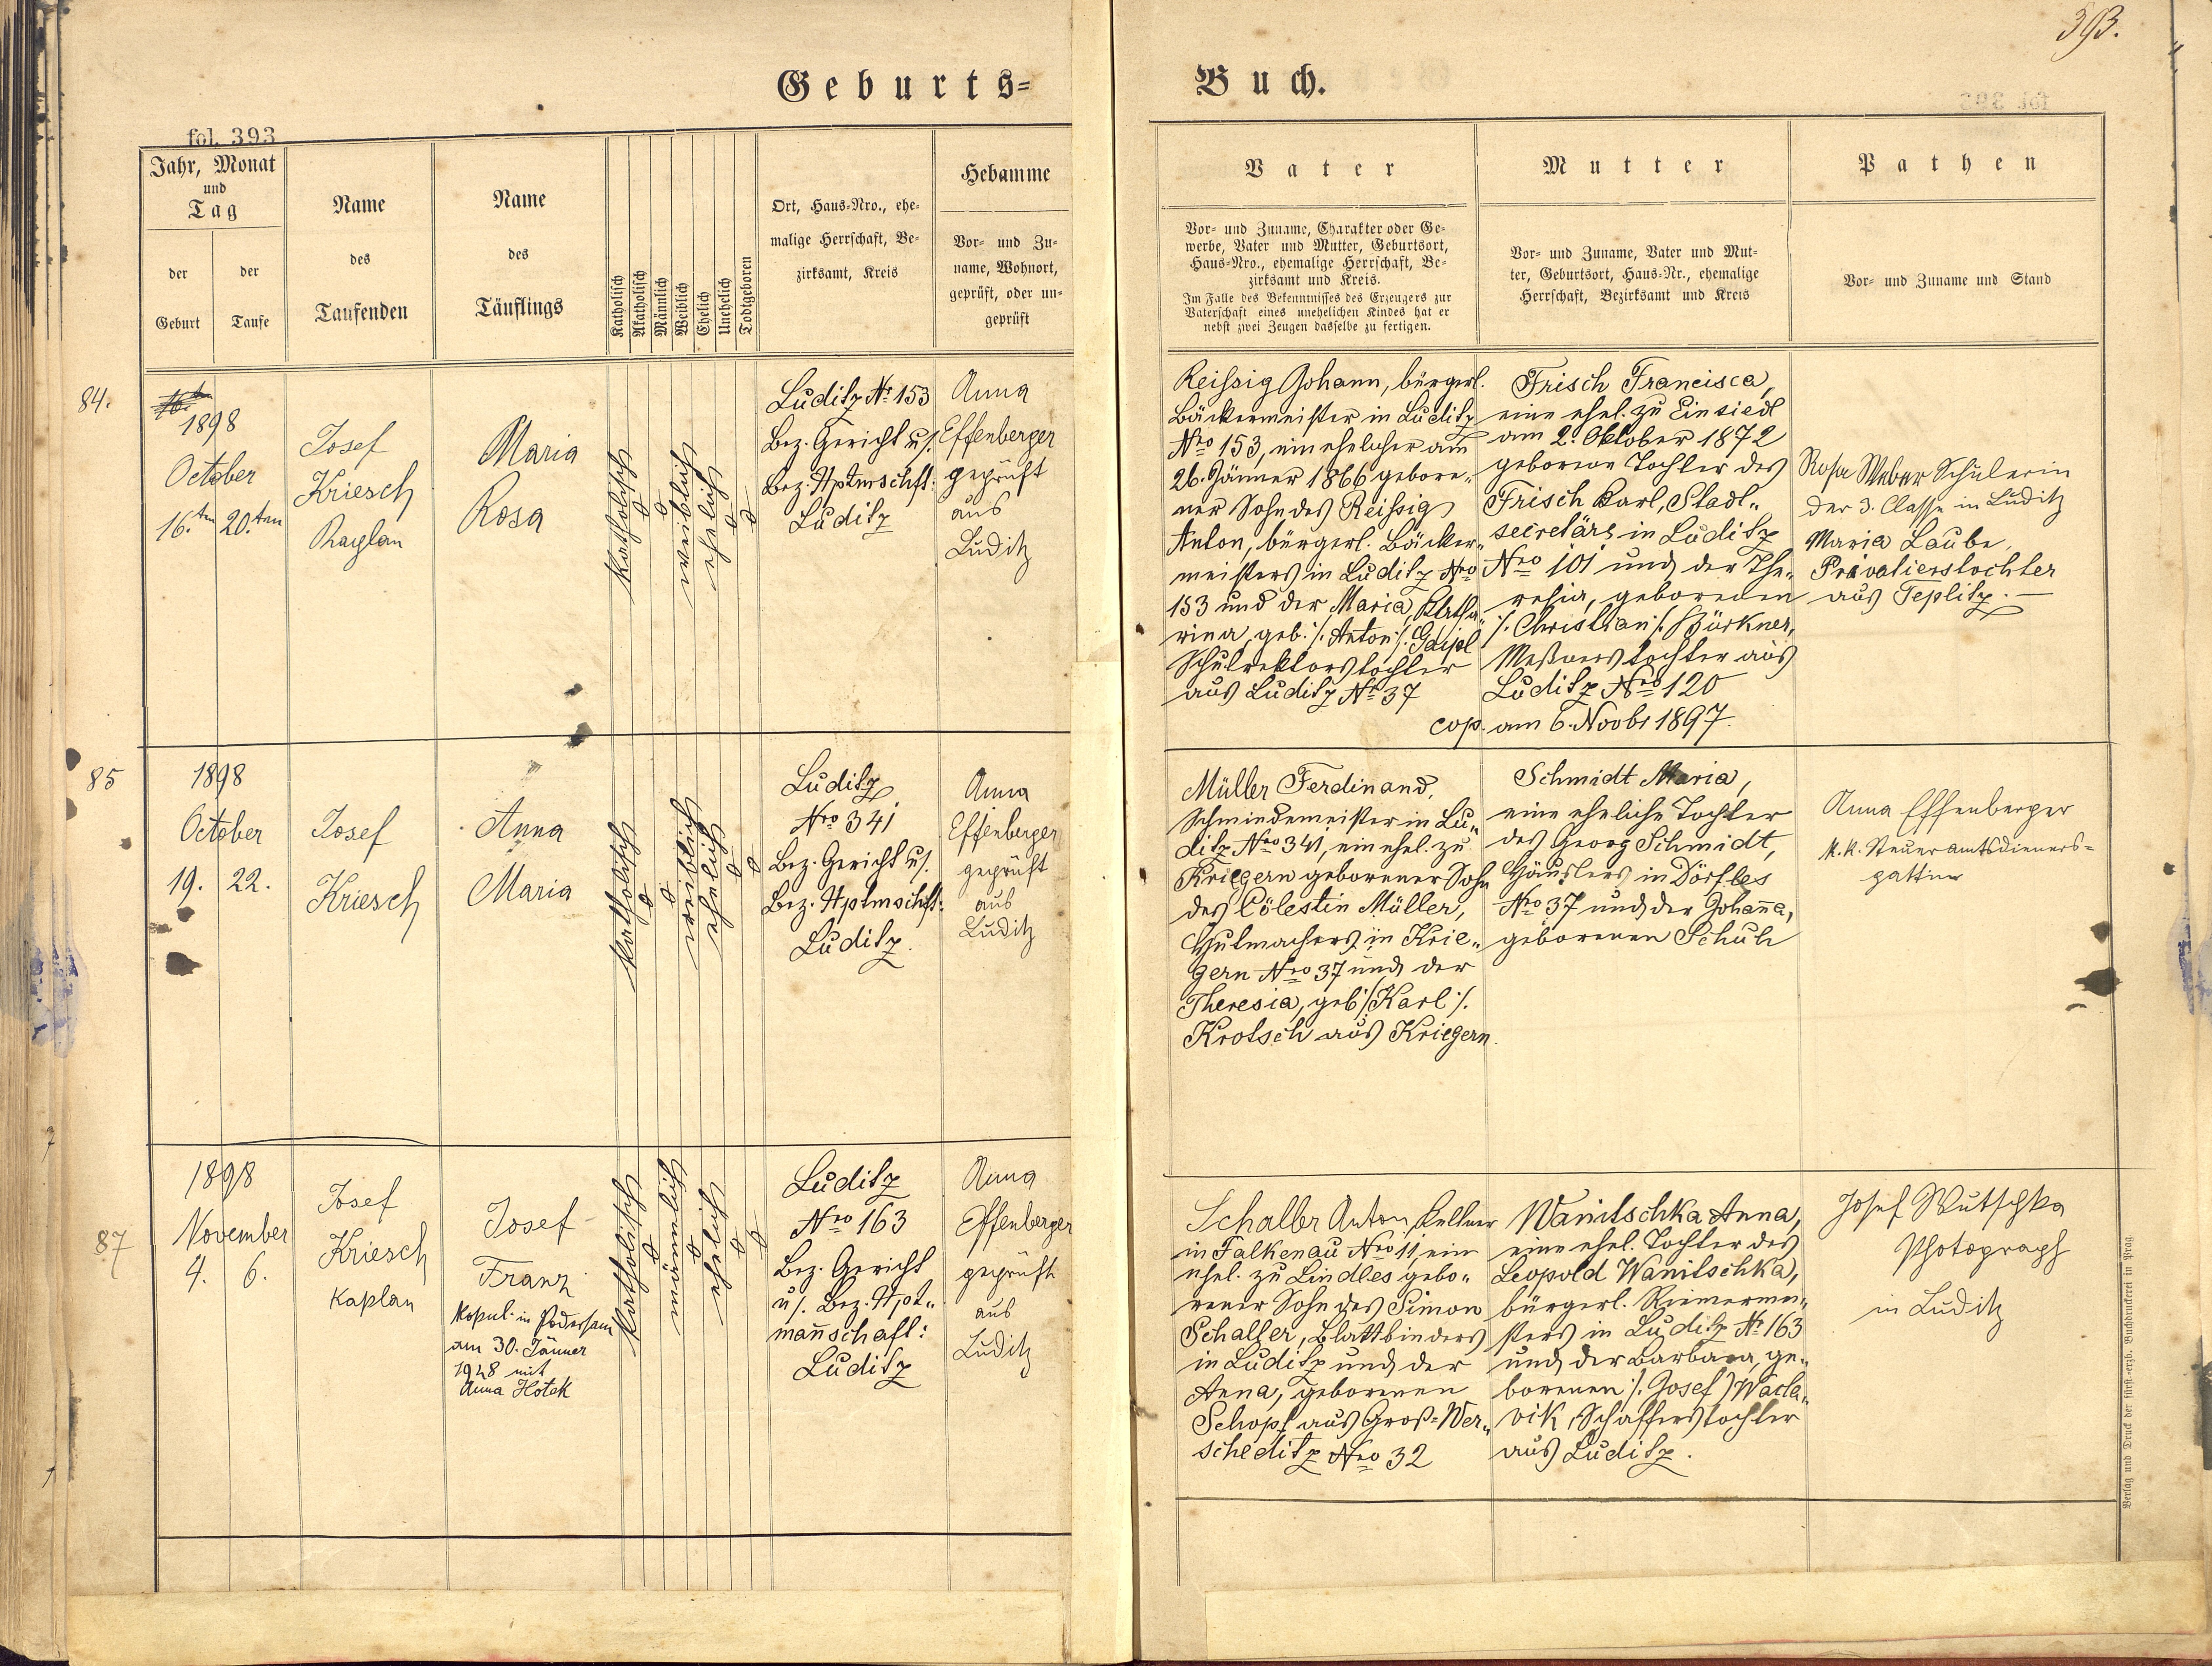 393.
Geburts=
Buch.
fol. 393
Jahr, Monat
und
Tag
der
Geburt
der
Taufe
Name
des
Taufenden
Name
des
Täuflings
Katholisch
Akatholisch
Männlich
Weiblich
Ehelich
Unehelich
Todtgeboren
Ort, Haus-Nro., ehe-
malige Herrschaft, Be-
zirksamt, Kreis
Hebamme
Vor- und Zu-
name, Wohnort,
geprüft, oder un-
geprüft
Vater
Vor- und Zuname, Charakter oder Ge-
werbe, Vater und Mutter, Geburtsort,
Haus-Nro., ehemalige Herrschaft, Be-
zirksamt und Kreis.
Im Falle des Bekenntnisses des Erzeugers zur
Vaterschaft eines unehelichen Kindes hat er
nebst zwei Zeugen dasselbe zu fertigen.
Mutter
Vor- und Zuname, Vater und Mut-
ter, Geburtsort, Haus-Nr., ehemalige
Herrschaft, Bezirksamt und Kreis
Pathen
Vor- und Zuname und Stand
84.
1898
October
16.ten 20.ten
Josef
Kriesch
Maria
Rosa
katholisch
weiblich
ehelich
Luditz No 153
Bez. Gericht u/.
Bez. Hptmschft:
Luditz
Anna
Effenberger
geprüft
aus
Luditz
Reißig Johann, bürgerl.
Bäckermeister in Luditz
Nro 153, ein ehelicher am
26. Jänner 1866 gebore„
ner Sohn des Reißig
Anton, bürgerl. Bäcker„
meisters in Luditz Nro
153 und der Maria, Katha„
rina, geb. /. Anton /. Gaipl
Schulrektorstochter
aus Luditz No 37
Frisch Francisca,
eine ehel. zu Einsiedl
am 2. Oktober 1872
geborene Tochter des
Frisch Karl, Stadt„
secretärs in Luditz
Nro 101 und der The„
resia, geborenen
/. Christian /. Bürkner,
Meßnerstochter aus
Luditz Nro 120
cop. am 6. Novbr 1897.
Rosa Weber Schülerin
der 3. Classe in Luditz
Maria Laube,
Privatierstochter
aus Teplitz. —
85
1898
October
19. 22.
Josef
Kriesch
Anna
Maria
katholisch
weiblich
ehelich
Luditz
Nro 341
Bez. Gericht u/.
Bez. Hptmschft:
Luditz.
Anna
Effenberger
geprüft
aus
Luditz
Müller Ferdinand,
Schmiedemeister in Lu„
ditz Nro 341, ein ehel. zu
Kriegern geborener Sohn
des Cölestin Müller,
Hutmachers in Krie„
gern Nro 37 und der
Theresia, geb. /. Karl /.
Krotsch aus Kriegern.
Schmidt Maria,
eine eheliche Tochter
des Georg Schmidt,
Häuslers in Dörfles
Nro 37 und der Johanna,
geborenen Schuh
Anna Effenberger
k.k. Steueramtsdieners=
gattin
87
1898
November
4. 6.
Josef
Kriesch
Kaplan
Josef
Franz
kopul. in Podersam
am 30. Jänner
1928 mit
Anna Hotek
katholisch
männlich
ehelich
Luditz
Nro 163
Bez. Gericht
u/. Bez. Hpt„
mannschaft:
Luditz
Anna
Effenberger
geprüft
aus
Luditz
Schaller Anton, Kellner
in Falkenau Nro 11, ein
ehel. zu Lindles gebo„
rener Sohn des Simon
Schaller, Blattbinders
in Luditz und der
Anna, geborenen
Schopf aus Groß-Wer„
scheditz Nro 32
Wanitschka Anna,
eine ehel. Tochter des
Leopold Wanitschka,
bürgerl. Riemermei„
sters in Luditz No 163
und der Barbara, ge„
borenen /. Josef / Wacla„
vik, Schafferstochter
aus Luditz.
Josef Wutschka
Photograph
in Luditz
Verlag und Druck der fürst.-erzb. Buchdruckerei in Prag